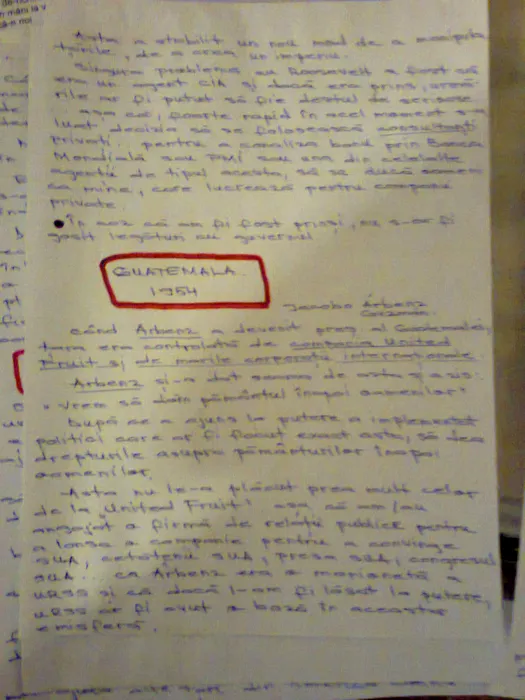 Asta a stabilit un nou mod de a manipula
țările, de a crea un imperiu.
Singura problemă cu Roosevelt a fost că
era un agent CIA și dacă era prins, urmă-
rile ar fi putut să fie destul de serioase
așa că, foarte rapid în acel moment s-a
luat decizia să se folosească consultanți
privați pentru a canaliza banii prin Banca
Mondială sau FMI sau una din celelalte
agenții de tipul acesta, să se ducă oameni
ca mine, care lucrează pentru companii
private.
• În caz că am fi fost prinși, nu s-ar fi
găsit legături cu guvernul
GUATEMALA
1954
Jacobo Árbenz
Guzmán.
când Arbenz a devenit preș. al Guatemalei,
țara era controlată de compania United
Fruit și de marile corporații internaționale
Arbenz și-a dat seama de asta și a zis:
"vrem să dăm pământul înapoi oamenilor"
După ce a ajuns la putere a implementat
politici care ar fi făcut exact asta, să dea
drepturile asupra pământurilor înapoi
oamenilor.
Asta nu le-a plăcut prea mult celor
de la "United Fruit" așa că am/au
angajat o firmă de relații publice pentru
a lansa o campanie pentru a convinge
SUA, cetățenii SUA, presa SUA, congresul
SUA... ca Arbenz era o marionetă a
URSS și că dacă l-am fi lăsat la putere,
URSS ar fi avut o bază în această
emisferă.